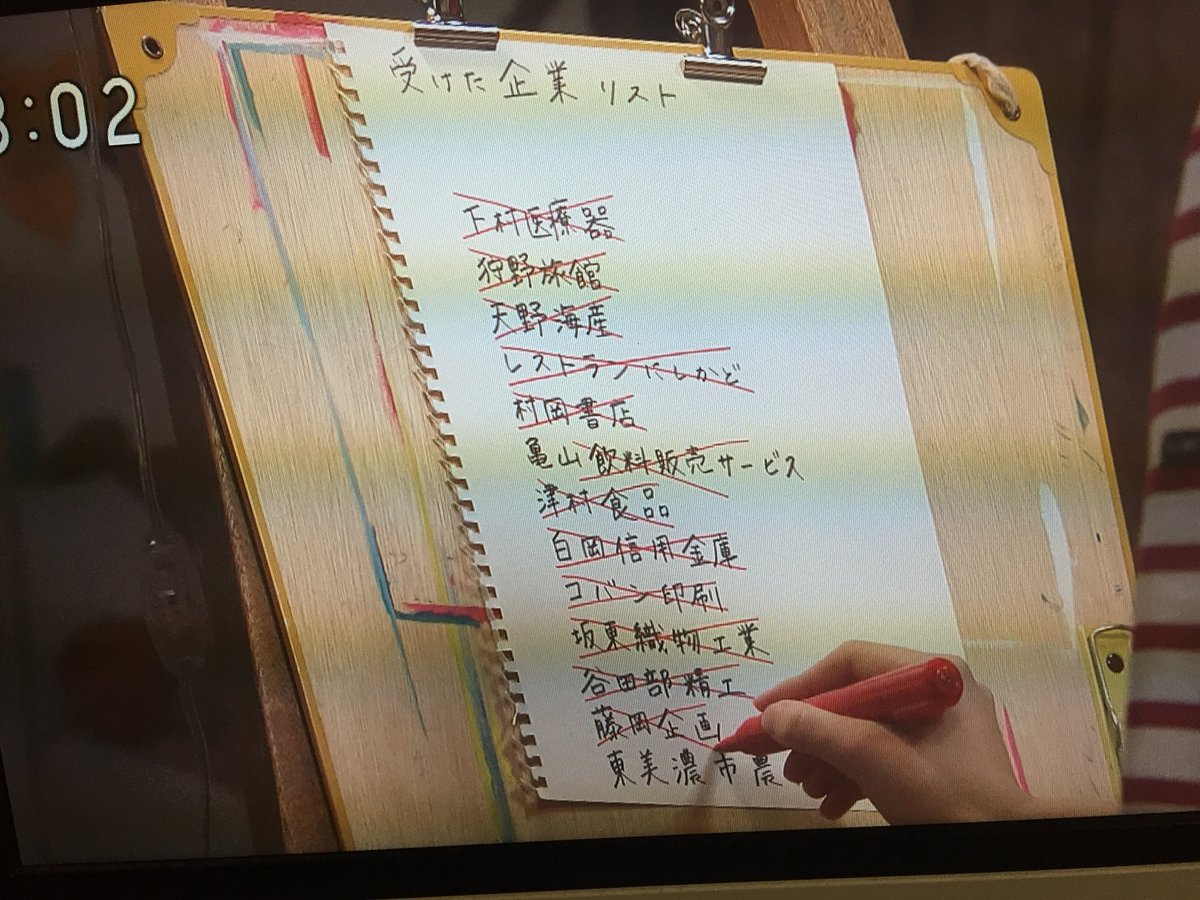 :02
受けた企業リスト
下村医療器
狩野旅館
天野海産
レストランにしかど
村岡書店
亀山飲料販売サービス
津村食品
白岡信用金庫
コバン印刷
坂東織物工業
谷田部精工
藤岡企画
東美濃市農